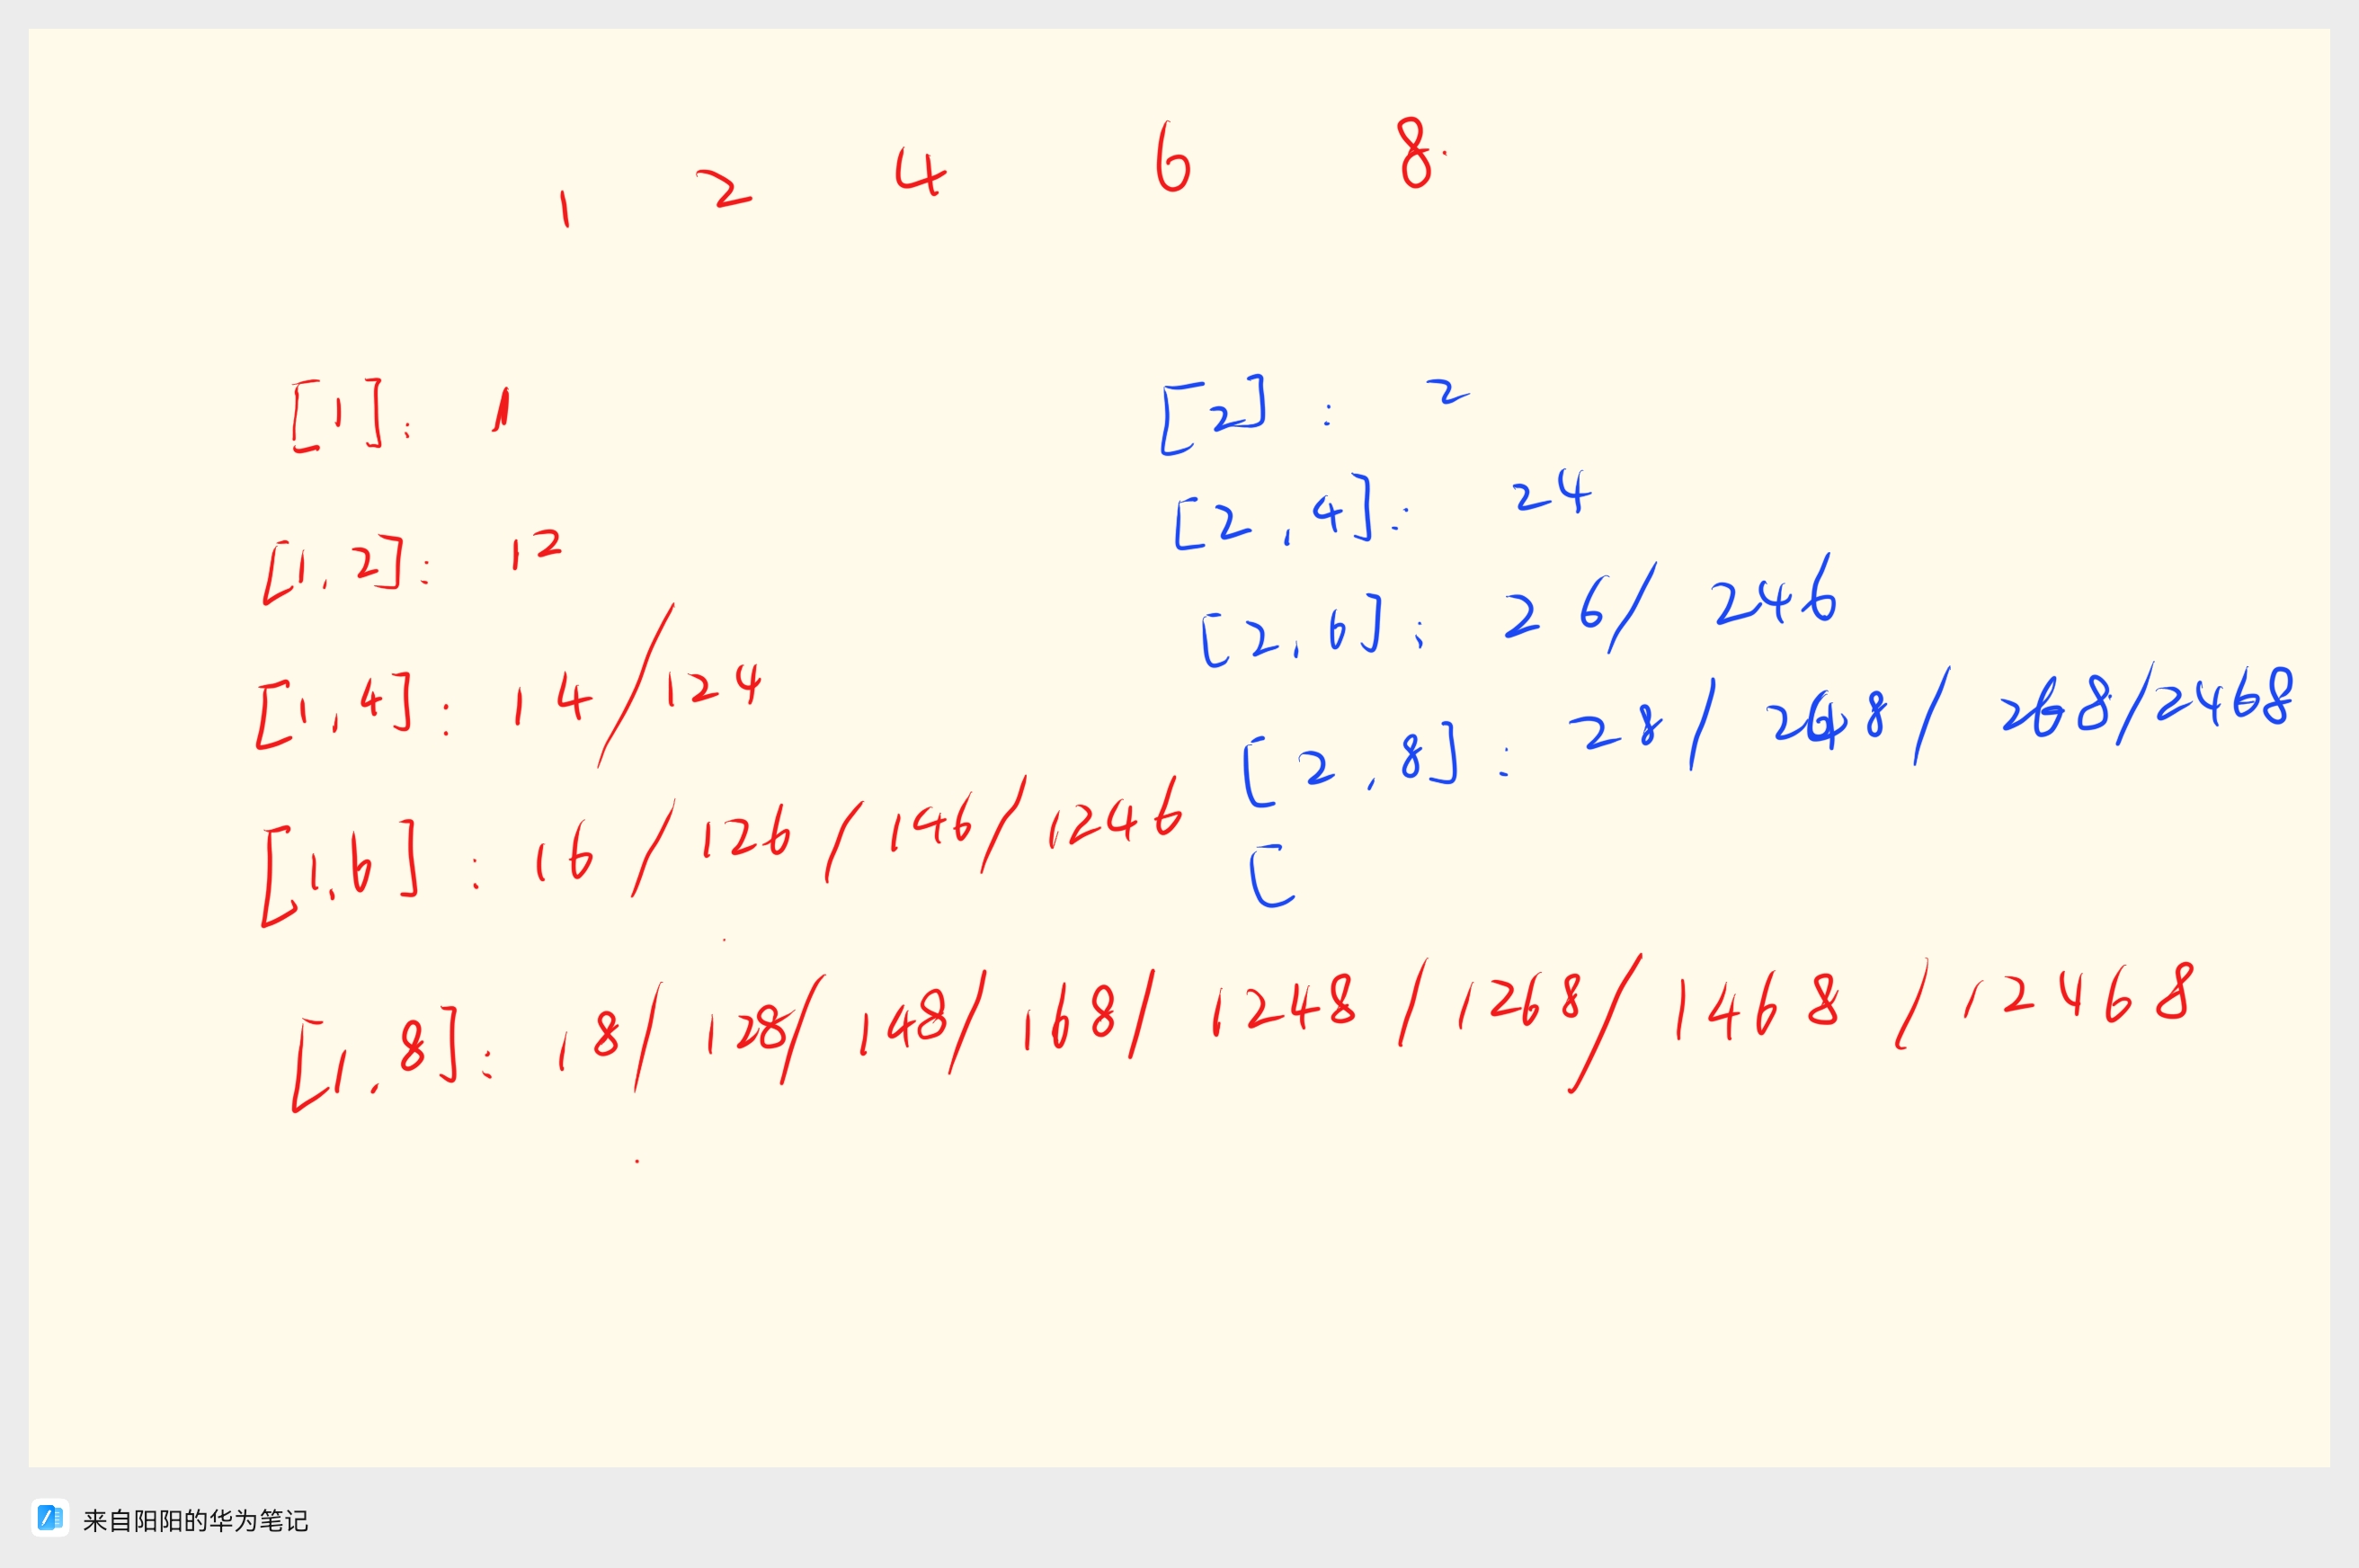 1 2 4 6 8
[1]: 1
[1,2]: 12
[1,4]: 14/124
[1,6]: 16/126/146/1246
[1,8]: 18/128/148/168/1248/1268/1468/12468
[2]: 2
[2,4]: 24
[2,6]: 26/246
[2,8]: 28/248/268/2468
[
来自阳阳的华为笔记